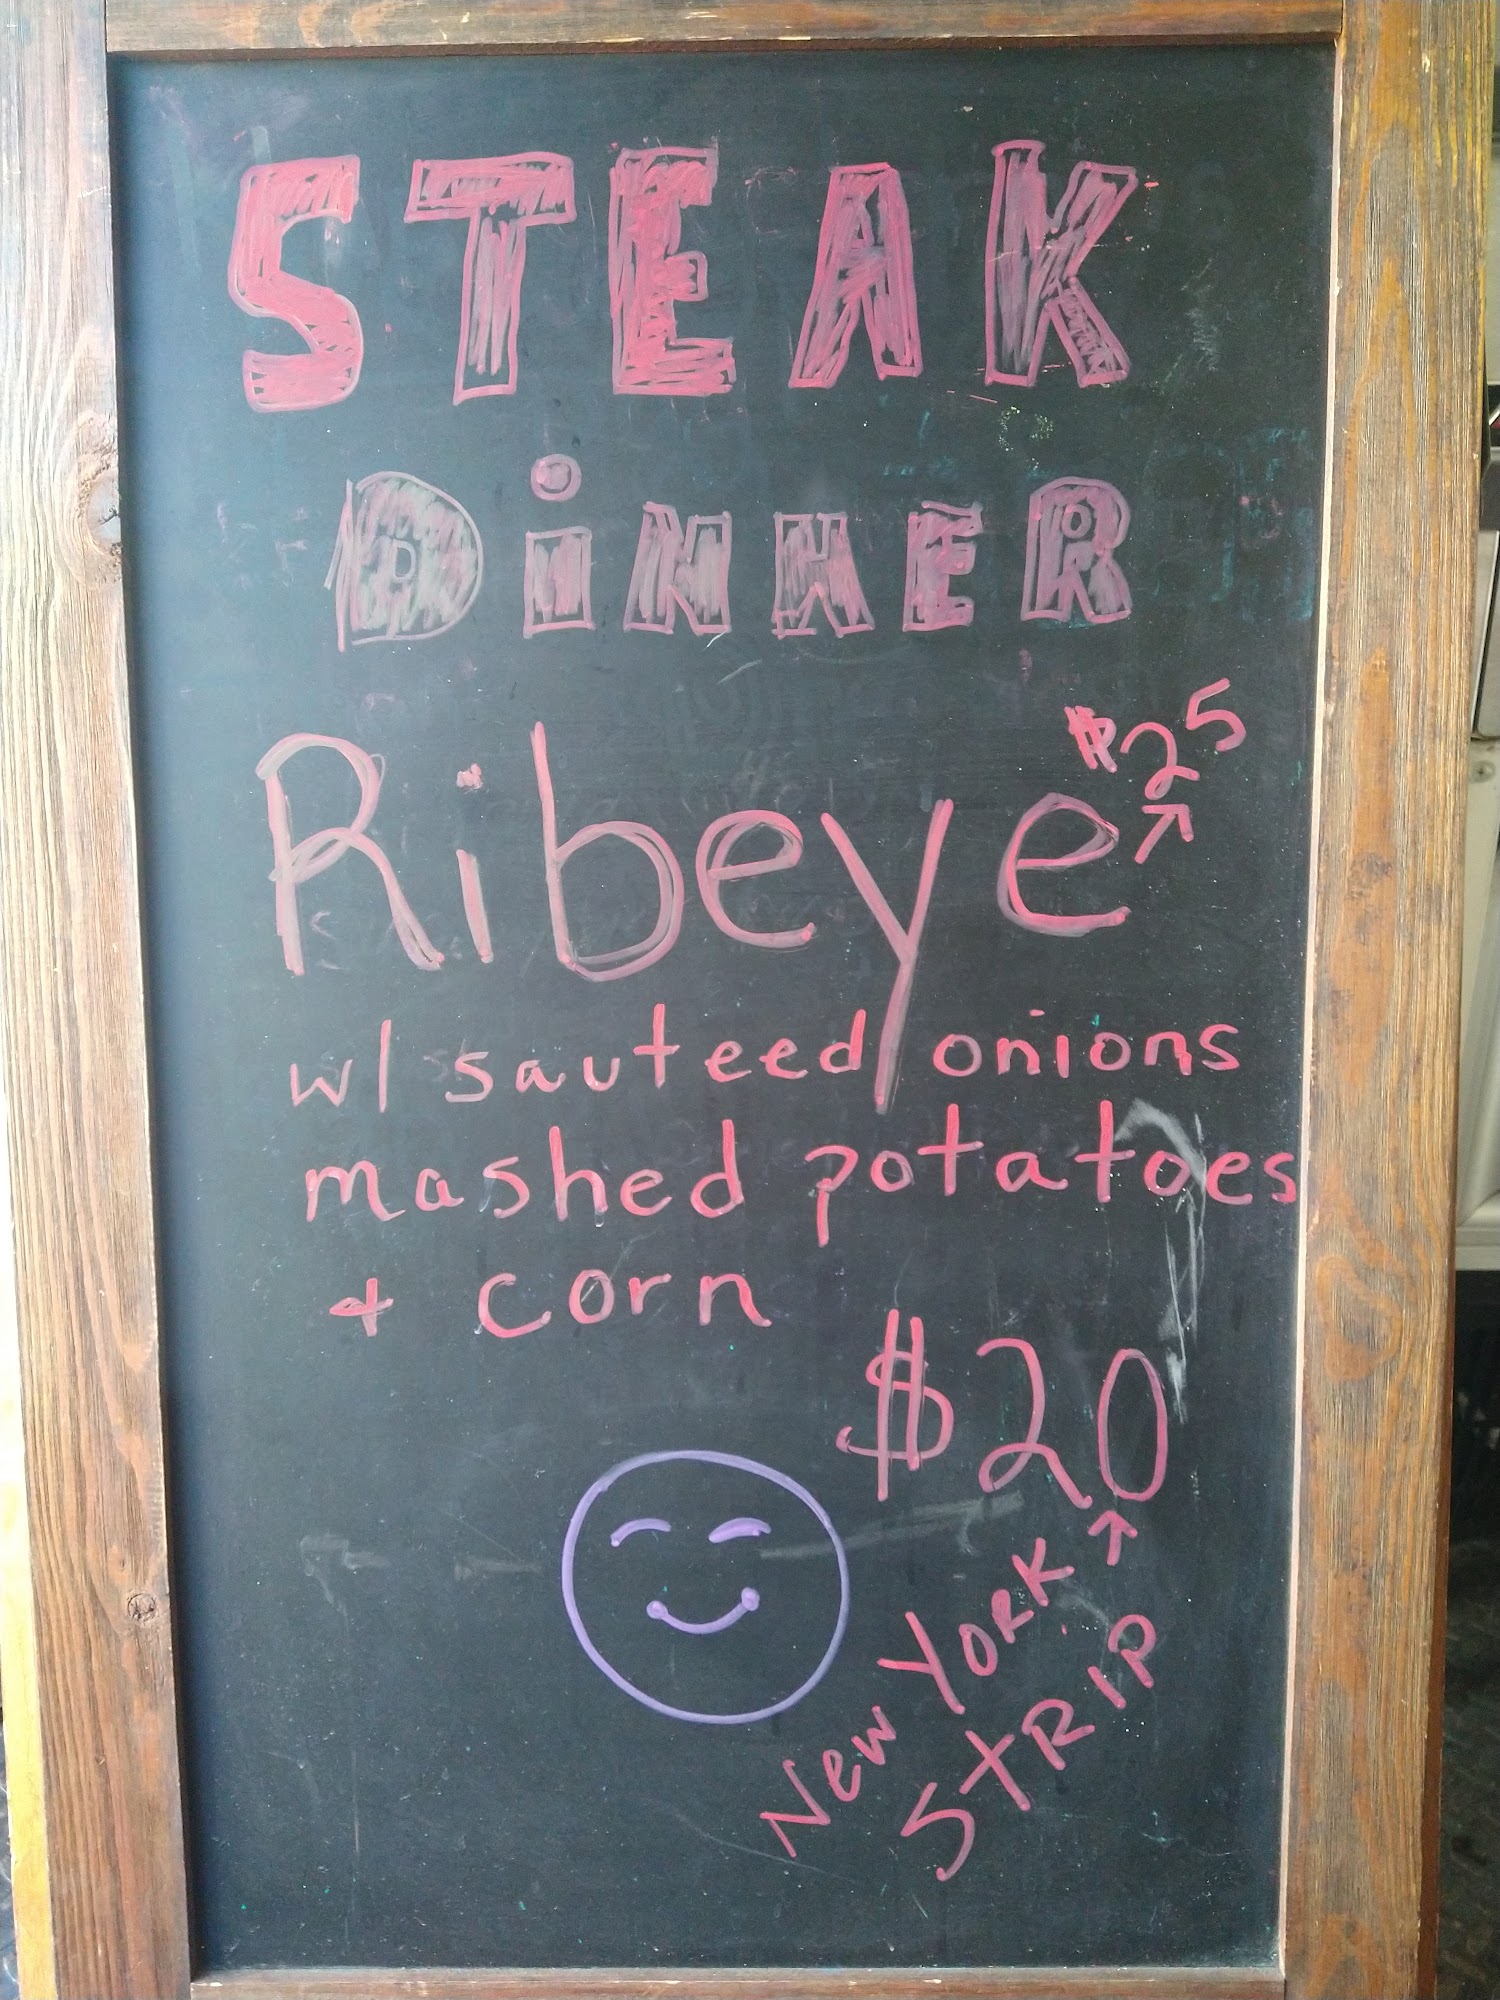 STEAK
DiNNER
$25
Ribeye
w/ sauteed onions
mashed potatoes
+ corn
$20
New YORK
STRIP